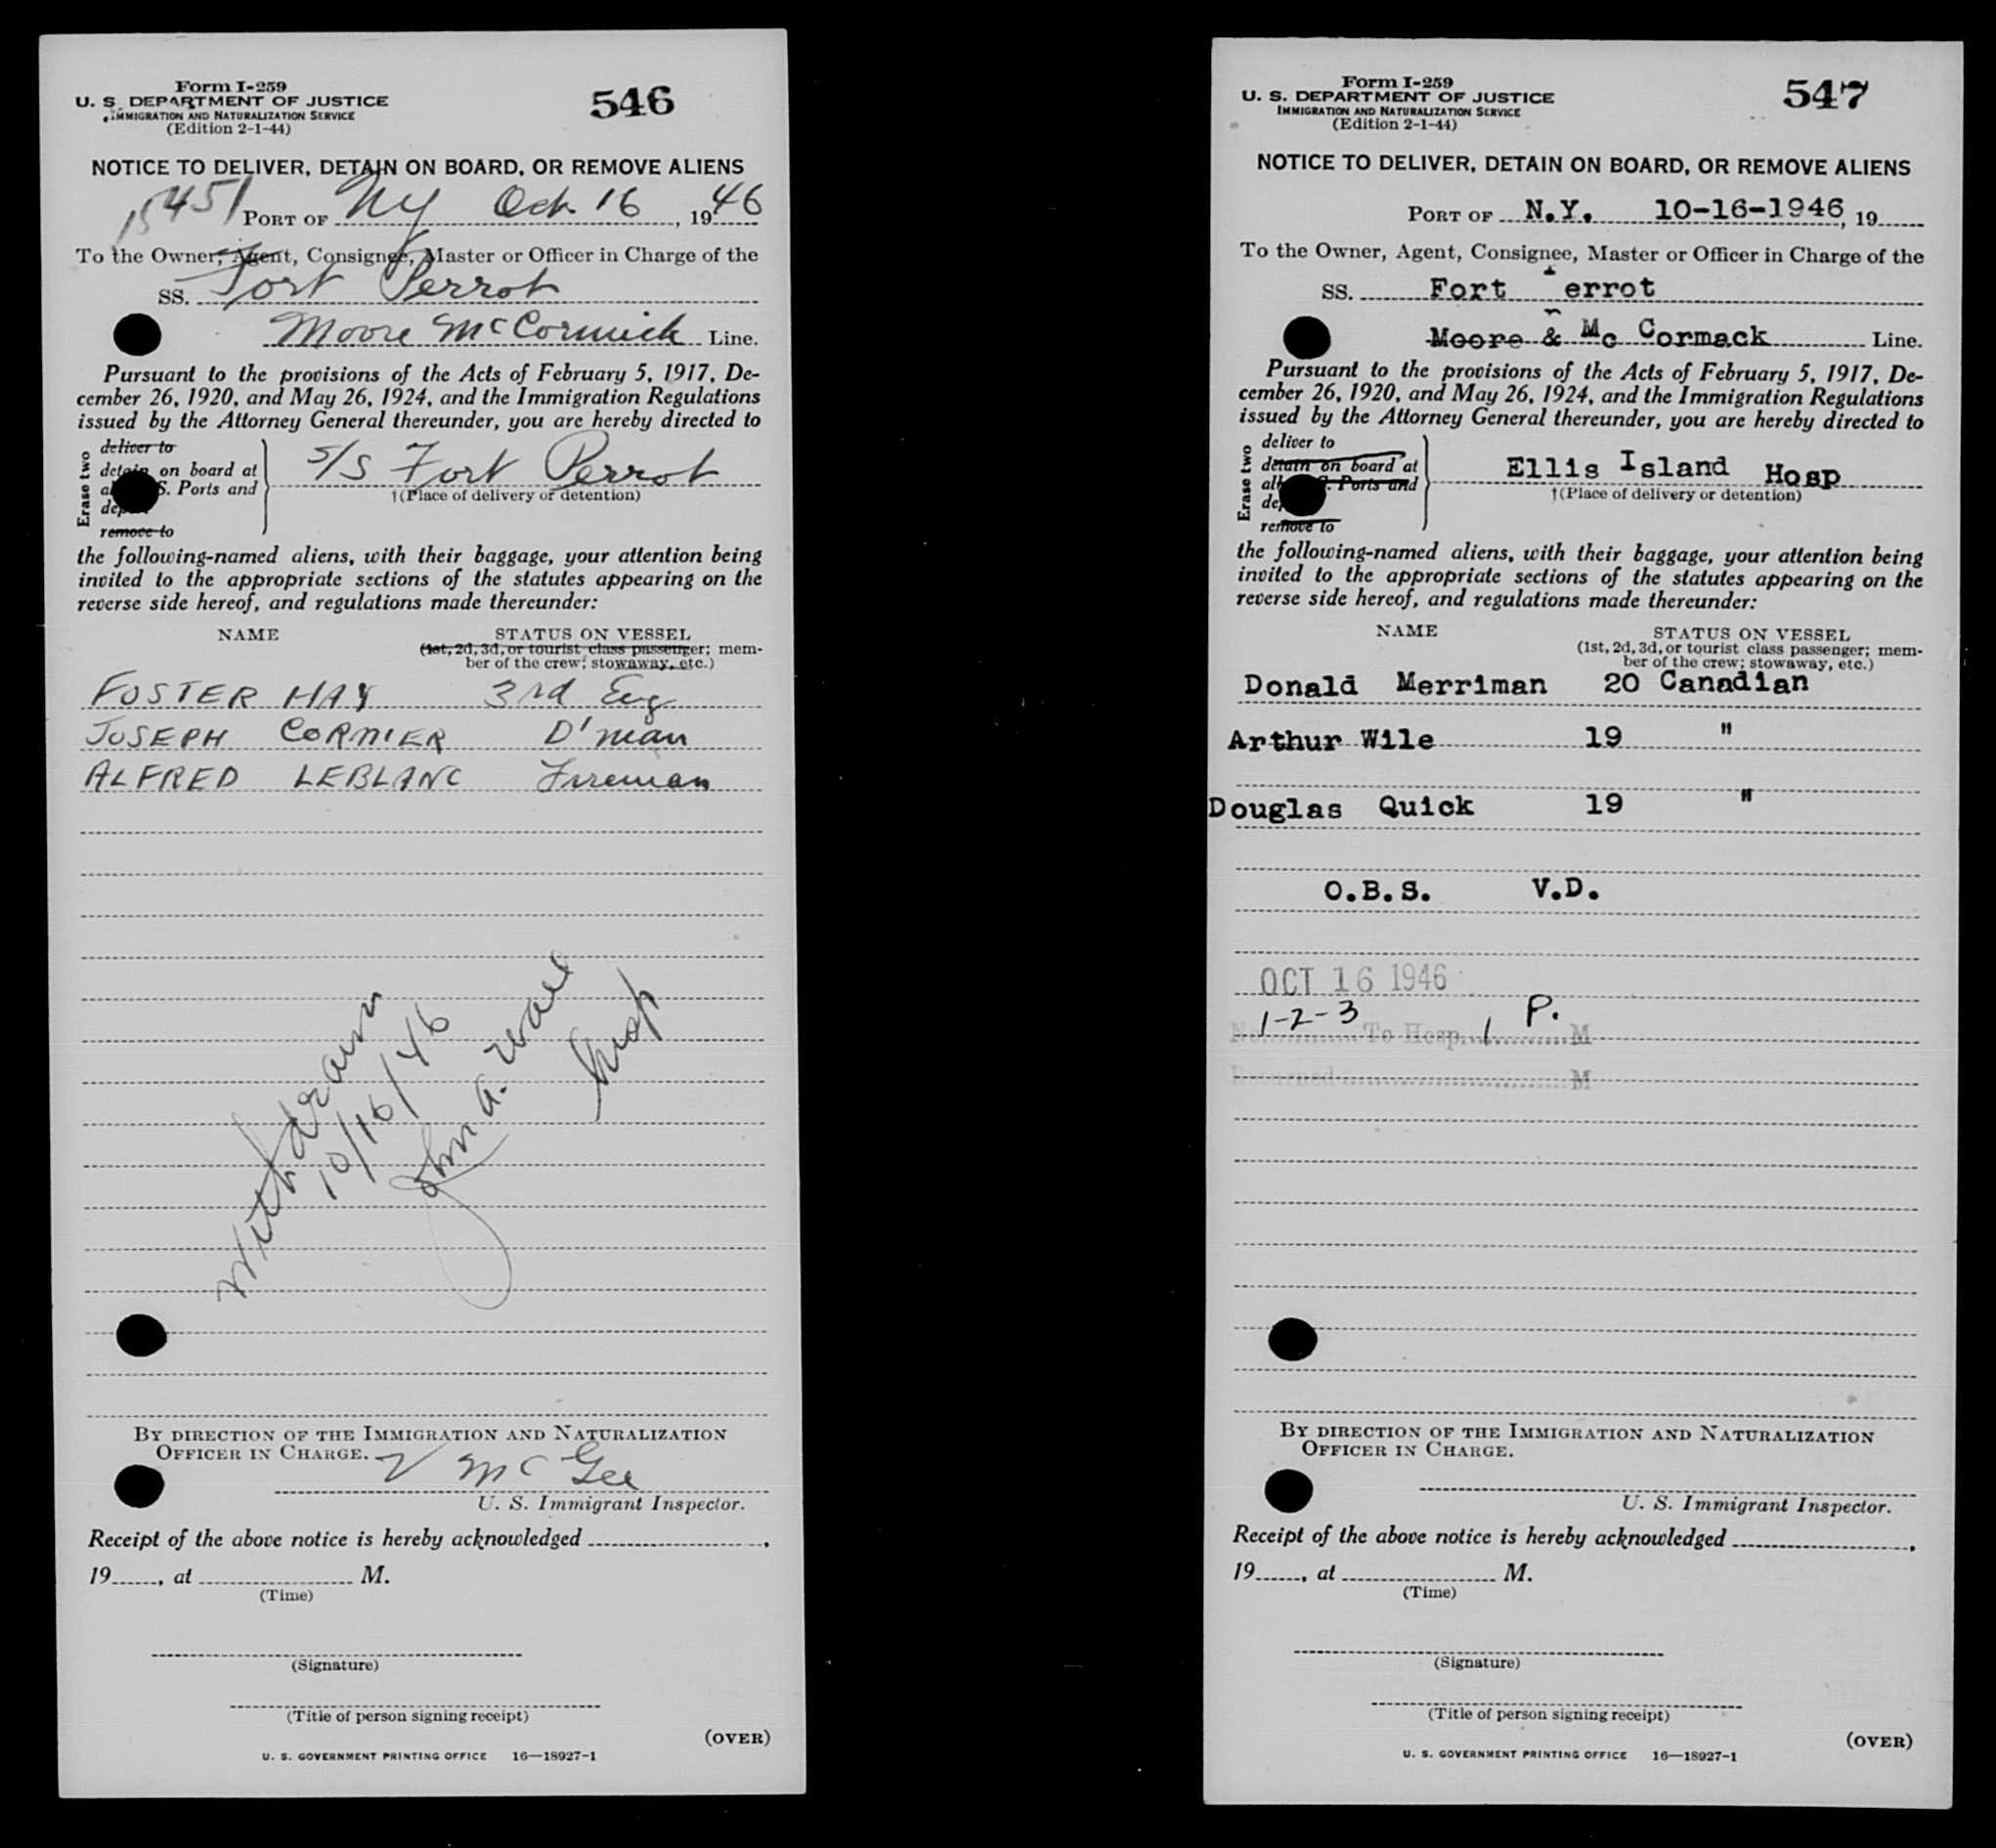 Form I-259
U. S. DEPARTMENT OF JUSTICE
IMMIGRATION AND NATURALIZATION SERVICE
(Edition 2-1-44)
546
NOTICE TO DELIVER, DETAIN ON BOARD, OR REMOVE ALIENS
15451
PORT OF NY Oct 16, 1946
To the Owner, Agent, Consignee, Master or Officer in Charge of the
SS. Fort Perrot
Moore McCormick Line.
Pursuant to the provisions of the Acts of February 5, 1917, De-
cember 26, 1920, and May 26, 1924, and the Immigration Regulations
issued by the Attorney General thereunder, you are hereby directed to
Erase two
deliver to
detain on board at
all U. S. Ports and
deport
remove to
S/S Fort Perrot
†(Place of delivery or detention)
the following-named aliens, with their baggage, your attention being
invited to the appropriate sections of the statutes appearing on the
reverse side hereof, and regulations made thereunder:
NAME STATUS ON VESSEL
(1st, 2d, 3d, or tourist class passenger; mem-
ber of the crew; stowaway, etc.)
FOSTER HAY 3rd Eng
JOSEPH CORMIER D'man
ALFRED LEBLANC Fireman
Withdrawn
10/16/46
John A. Wall
Insp
BY DIRECTION OF THE IMMIGRATION AND NATURALIZATION
OFFICER IN CHARGE.
V McGee
U. S. Immigrant Inspector.
Receipt of the above notice is hereby acknowledged ,
19 , at M.
(Time)
(Signature)
(Title of person signing receipt)
(OVER)
U. S. GOVERNMENT PRINTING OFFICE 16—18927-1
Form I-259
U. S. DEPARTMENT OF JUSTICE
IMMIGRATION AND NATURALIZATION SERVICE
(Edition 2-1-44)
547
NOTICE TO DELIVER, DETAIN ON BOARD, OR REMOVE ALIENS
PORT OF N.Y. 10-16-1946, 19
To the Owner, Agent, Consignee, Master or Officer in Charge of the
SS. Fort Perrot
Moore & Mc Cormack Line.
Pursuant to the provisions of the Acts of February 5, 1917, De-
cember 26, 1920, and May 26, 1924, and the Immigration Regulations
issued by the Attorney General thereunder, you are hereby directed to
Erase two
deliver to
detain on board at
all U. S. Ports and
deport
remove to
Ellis Island Hosp
†(Place of delivery or detention)
the following-named aliens, with their baggage, your attention being
invited to the appropriate sections of the statutes appearing on the
reverse side hereof, and regulations made thereunder:
NAME STATUS ON VESSEL
(1st, 2d, 3d, or tourist class passenger; mem-
ber of the crew; stowaway, etc.)
Donald Merriman 20 Canadian
Arthur Wile 19 "
Douglas Quick 19 "
O.B.S. V.D.
OCT 16 1946
No. 1-2-3 To Hosp. 1 P. M
Returned M
BY DIRECTION OF THE IMMIGRATION AND NATURALIZATION
OFFICER IN CHARGE.
U. S. Immigrant Inspector.
Receipt of the above notice is hereby acknowledged ,
19 , at M.
(Time)
(Signature)
(Title of person signing receipt)
(OVER)
U. S. GOVERNMENT PRINTING OFFICE 16—18927-1